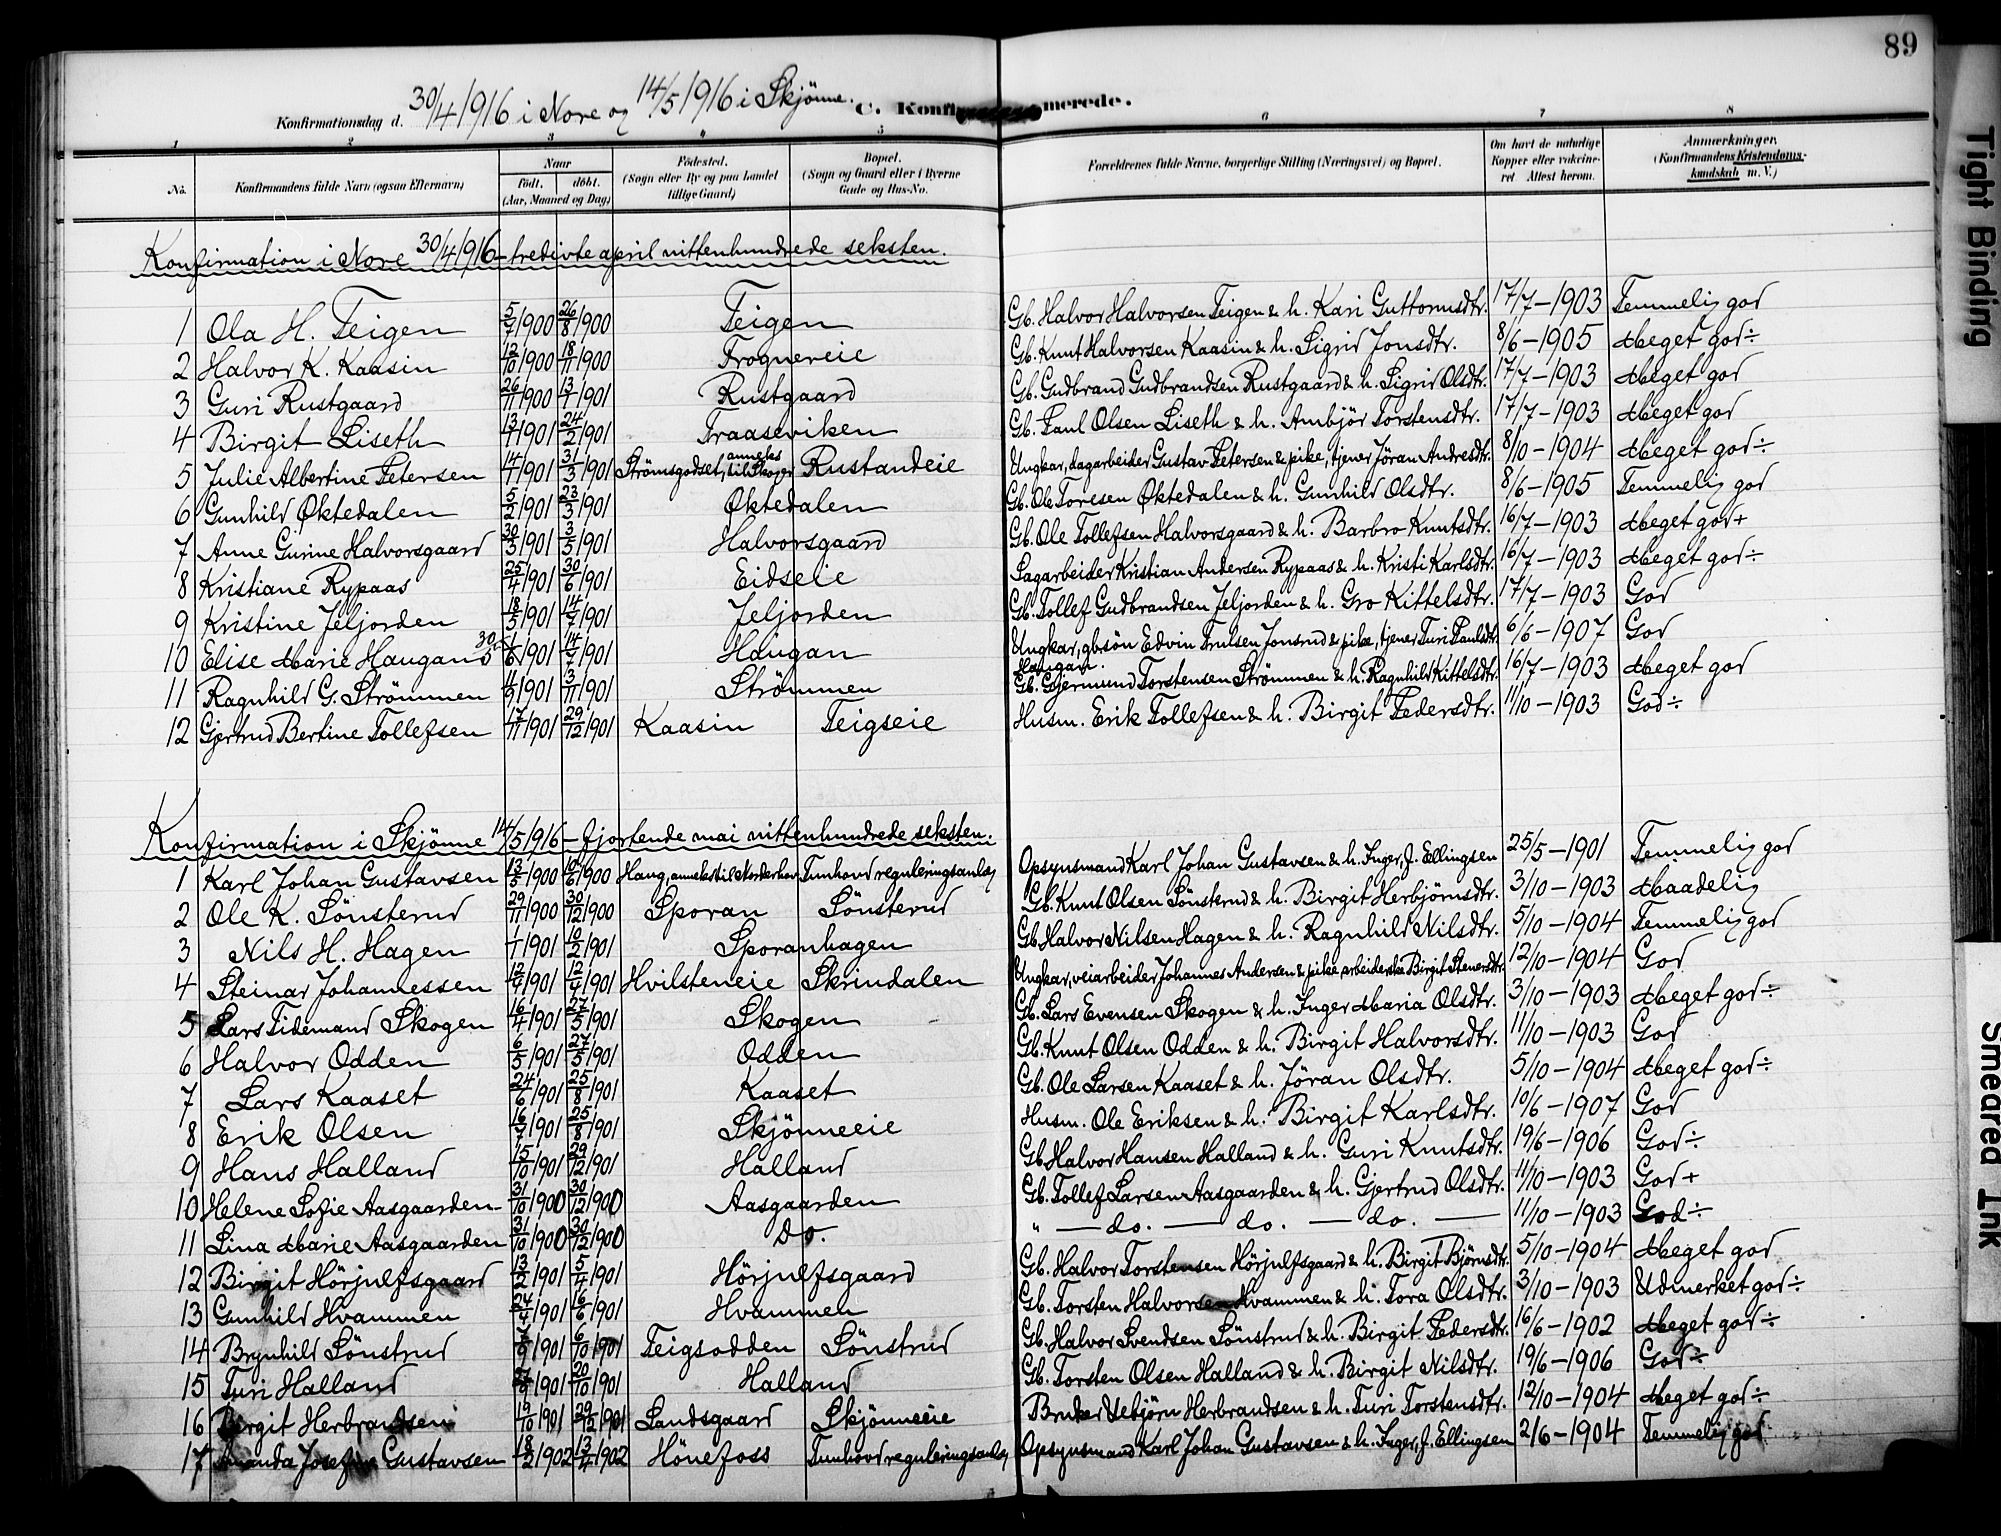 89
Konfirmationsdag d. 30/4 1916 i Nore og 14/5 1916 i Skjönne. C. Konfirmerede.
1 2 3 4 5 6 7 8
No. Konfirmandens fulde Navn (ogsaa Efternavn) Naar födt. döbt. (Aar, Maaned og Dag) Födested. (Sogn eller By og paa Landet tillige Gaard) Bopæl. (Sogn og Gaard eller i Byerne Gade og Hus-No. Forældrenes fulde Navne, borgerlige Stilling (Næringsvei) og Bopæl. Om havt de naturlige Kopper eller vakcineret Attest herom. Anmærkninger. (Konfirmandens Kristendomskundskab m. V.)
Konfirmation i Nore 30/4 1916 - tredivte april nittenhundrede seksten.
1 Ola H. Teigen 5/7 1900 26/8 1900 Teigen Gb. Halvor Halvorsen Teigen & h. Kari Guttormsdtr. 17/7 - 1903 Temmelig god
2 Halvor K. Kaasin 12/10 1900 18/11 1900 Frognereie Gb. Knut Halvorsen Kaasin & h. Sigrid Jonsdtr. 8/6 - 1905 Meget god ÷
3 Guri Rustgaard 26/11 1900 13/1 1901 Rustgaard Gb. Gudbrand Gudbrandsen Rustgaard & h. Sigrid Olsdtr. 17/7 - 1903 Meget god
4 Birgit Liseth 13/1 1901 24/2 1901 Traaseviken Gb. Paul Olsen Liseth & h. Ambjör Torstensdtr. 17/7 - 1903 Meget god
5 Julie Albertine Petersen 14/1 1901 31/3 1901 Strömsgodset, anneks til Skoger Rustandeie Ungkar, dagarbeider Gustav Petersen & pike, tjener Jöran Andresdtr. 8/10 - 1904 Meget god ÷
6 Gunhild Øktedalen 5/2 1901 23/3 1901 Øktedalen Gb. Ole Toresen Øktedalen & h. Gunhild Olsdtr. 8/6 - 1905 Temmelig god
7 Anne Gurine Halvorsgaard 30/3 1901 3/5 1901 Halvorsgaard Gb. Ole Tollefsen Halvorsgaard & h. Barbro Knutsdtr. 16/7 - 1903 Meget god +
8 Kristiane Rypaas 25/4 1901 30/6 1901 Eidseie Sagarbeider Kristian Andersen Rypaas & h. Kristi Karlsdtr. 16/7 - 1903 Meget god ÷
9 Kristine Jeljorden 18/5 1901 14/7 1901 Jeljorden Gb. Tollef Gudbrandsen Jeljorden & h. Gro Kittelsdtr. 17/7 - 1903 God
10 Elise Marie Haugan 30/5 1/6 1901 14/7 1901 Haugan Ungkar, gbsön Edvin Trulsen Jonsrud & pike, tjener Turi Paulsdtr. Haugan. 6/6 - 1907 God
11 Ragnhild G. Strömmen 4/9 1901 3/11 1901 Strömmen Gb. Gjermund Torstensen Strömmen & h. Ragnhild Kittelsdtr. 16/7 - 1903 Meget god
12 Gjertrud Bertine Tollefsen 17/11 1901 29/12 1901 Kaasin Teigseie Husm. Erik Tollefsen & h. Birgit Pedersdtr. 11/10 - 1903 God ÷
Konfirmation i Skjönne 14/5 1916 - fjortende mai nittenhundrede seksten.
1 Karl Johan Gustavsen 13/5 1900 10/6 1900 Haug, anneks til Norderhov Tunhovd reguleringsanlæg Opsynsmand Karl Johan Gustavsen & h. Inger, f. Ellingsen 25/5 - 1901 Temmelig god
2 Ole K. Sönsterud 29/11 1900 30/12 1900 Sporan Sönsterud Gb. Knut Olsen Sönsterud & h. Birgit Herbjörnsdtr. 3/10 - 1903 Maadelig
3 Nils H. Hagen 1/1 1901 10/2 1901 Sporanhagen Gb. Halvor Nilsen Hagen & h. Ragnhild Nilsdtr. 5/10 - 1904 Temmelig god
4 Steinar Johannessen 1901 12/4 1901 Hvilsteneie Skrindalen Ungkar, veiarbeider Johannes Andersen & pike arbeiderske Birgit Stenersdtr. 12/10 - 1904 God
5 Lars Tidemand Skogen 16/4 1901 27/5 1901 Skogen Gb. Lars Evensen Skogen & h. Inger Maria Olsdtr. 3/10 - 1903 Meget god ÷
6 Halvor Odden 6/5 1901 27/5 1901 Odden Gb. Knut Olsen Odden & h. Birgit Halvorsdtr. 11/10 - 1903 God
7 Lars Kaaset 24/6 1901 25/8 1901 Kaaset Gb. Ole Larsen Kaaset & h. Jöran Olsdtr. 5/10 - 1904 Meget god ÷
8 Erik Olsen 16/7 1901 25/8 1901 Skjönneeie Husm. Ole Eriksen & h. Birgit Karlsdtr. 10/6 - 1907 God
9 Hans Halland 15/10 1901 29/12 1901 Halland Gb. Halvor Hansen Halland & h. Guri Knutsdtr. 19/6 - 1906 God ÷
10 Helene Sofie Aasgaarden 31/10 1900 30/12 1900 Aasgaarden Gb. Tollef Larsen Aasgaarden & h. Gjertrud Olsdtr. 11/10 - 1903 God +
11 Lina Marie Aasgaarden 31/10 1900 30/12 1900 Do. " - do. - do. - do. - 11/10 - 1903 God ÷
12 Birgit Hörjulfsgaard 13/2 1901 5/4 1901 Hörjulfsgaard Gb. Halvor Torstensen Hörjulfsgaard & h. Birgit Björnsdtr. 5/10 - 1904 Meget god
13 Gunhild Hvammen 24/4 1901 16/6 1901 Hvammen Gb. Torsten Halvorsen Hvammen & h. Tora Olsdtr. 3/10 - 1903 Udmerket god ÷
14 Brynhild Sönstrud 7/9 1901 6/10 1901 Teigsodden Sönstrud Gb. Halvor Svendsen Sönstrud & h. Birgit Pedersdtr. 16/6 - 1902 Meget god ÷
15 Turi Halland 1901 20/10 1901 Halland Gb. Torsten Olsen Halland & h. Birgit Nilsdtr. 19/6 - 1906 God ÷
16 Birgit Herbrandsen 19/10 1901 29/12 1901 Landsgaard Skjönneeie Bruker Uebjörn Herbrandsen & h. Turi Torstensdtr. 12/10 - 1904 Meget god ÷
17 Amanda Josefine Gustavsen 18/2 1902 13/4 1902 Hönefoss Tunhovd reguleringsanlæg Opsynsmand Karl Johan Gustavsen & h. Inger, f. Ellingsen 2/6 - 1904 Temmelig god
Tight Binding
Smeared Ink